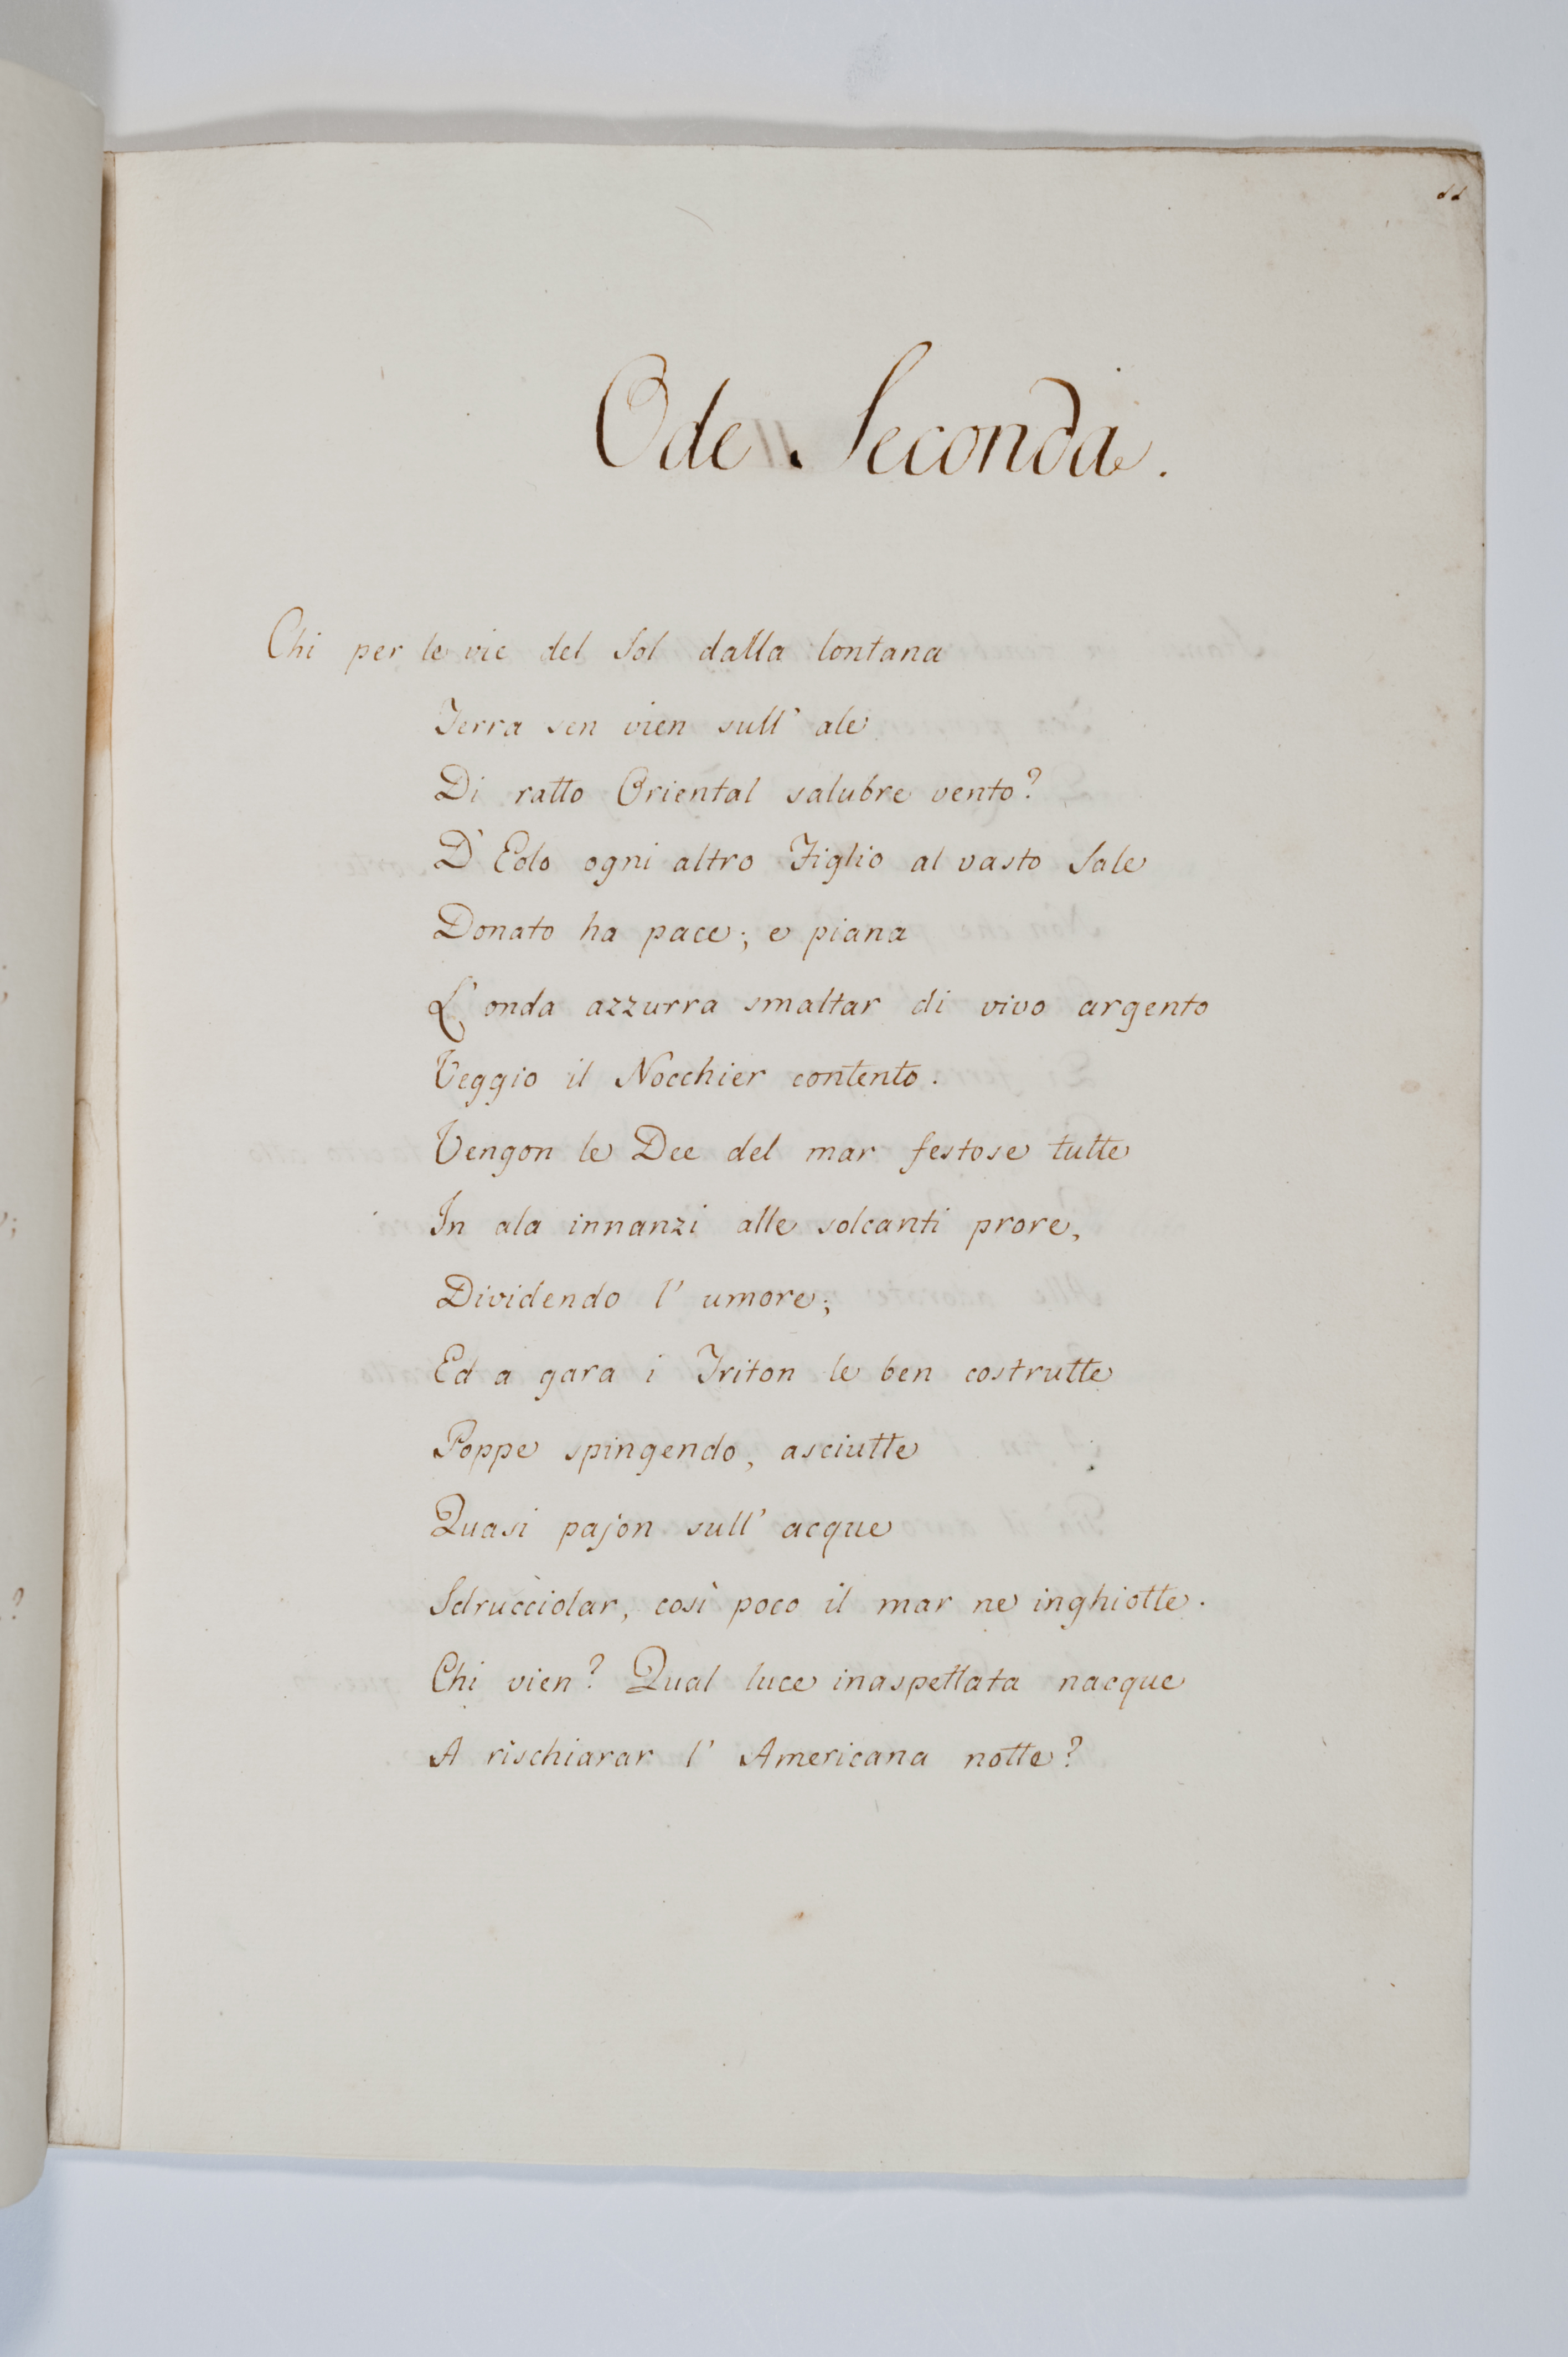 Ode Seconda.
Chi per le vie del Sol dalla lontana
Terra sen vien sull' ale
Di ratto Oriental salubre vento?
D' Eolo ogni altro Figlio al vasto Sale
Donato ha pace; e piana
L' onda azzurra smaltar di vivo argento
Veggio il Nocchier contento.
Vengon le Dee del mar festose tutte
In ala innanzi alle solcanti prore,
Dividendo l' umore;
Ed a gara i Triton le ben costrutte
Poppe spingendo, asciutte
Quasi pajon sull' acque
Sdrucciolar, così poco il mar ne inghiotte.
Chi vien? Qual luce inaspettata nacque
A rischiarar l' Americana notte?